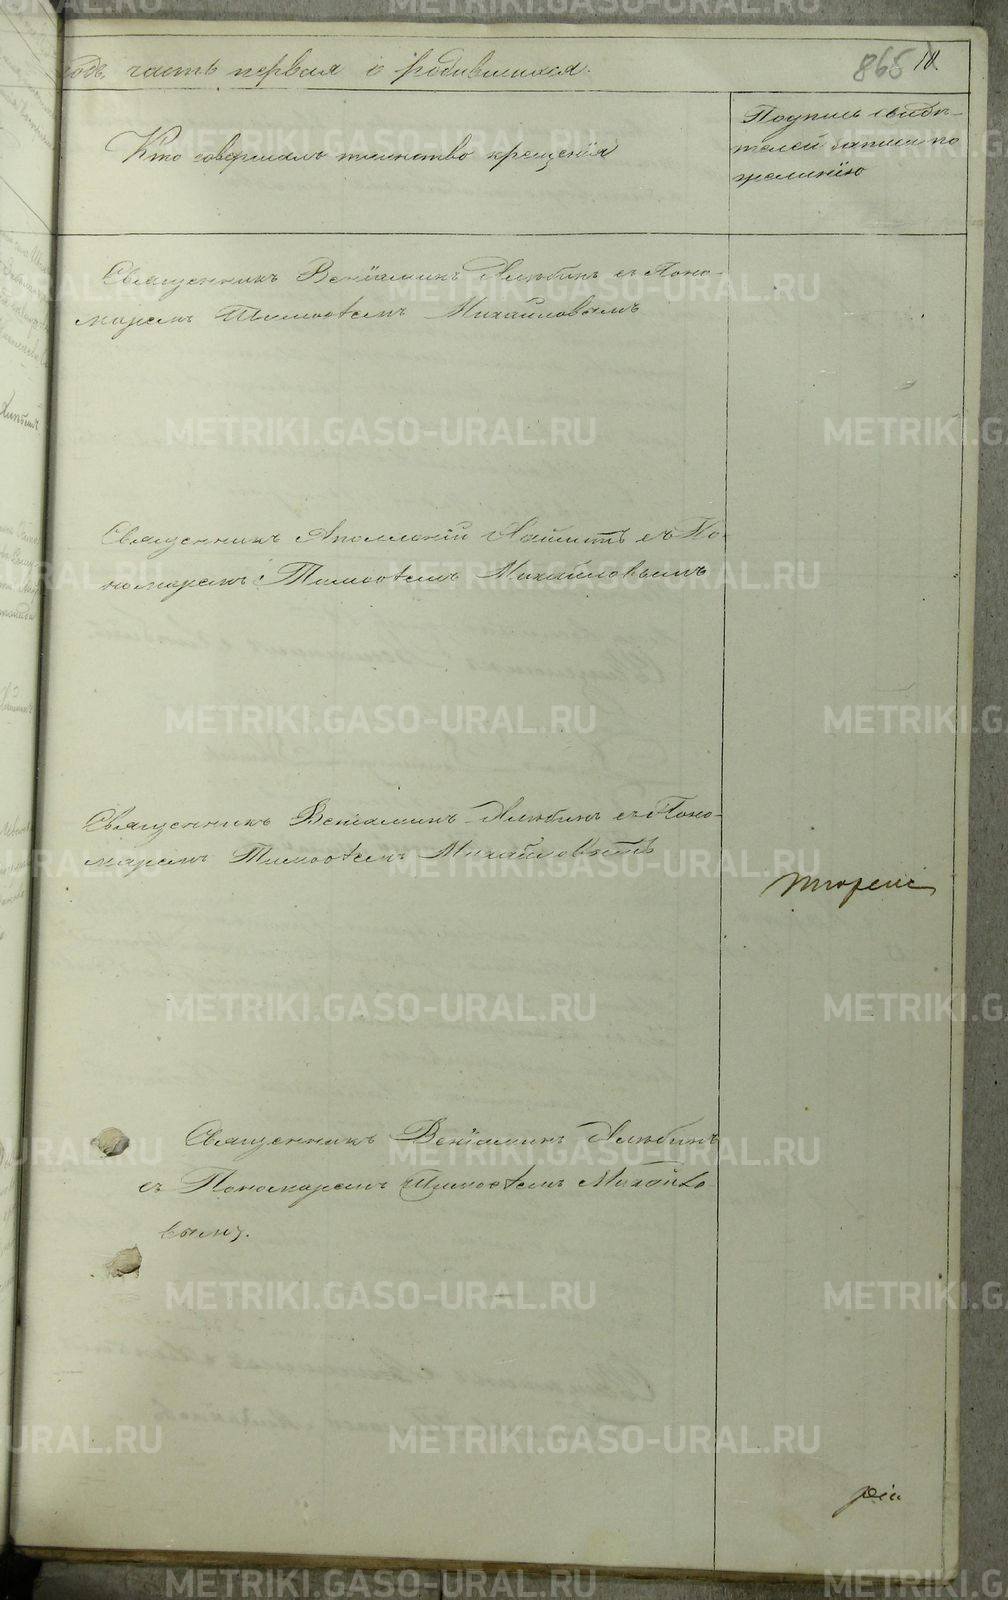 годъ часть первая о родившихся.
865 18.
Кто совершалъ таинство крещенія
Подпись свидѣ-
телей записи по
желанію
Священникъ Веніаминъ Алюбинъ съ Поно-
маремъ Тимоѳеемъ Михайловымъ
Священникъ Аполлоній съ По-
номаремъ Тимоѳеемъ Михайловымъ
Священникъ Веніаминъ Алюбинъ съ Поно-
маремъ Тимоѳеемъ Михайловымъ
Священникъ Веніаминъ Алюбинъ
съ Пономаремъ Тимоѳеемъ Михайло
вымъ.
METRIKI.GASO-URAL.RU